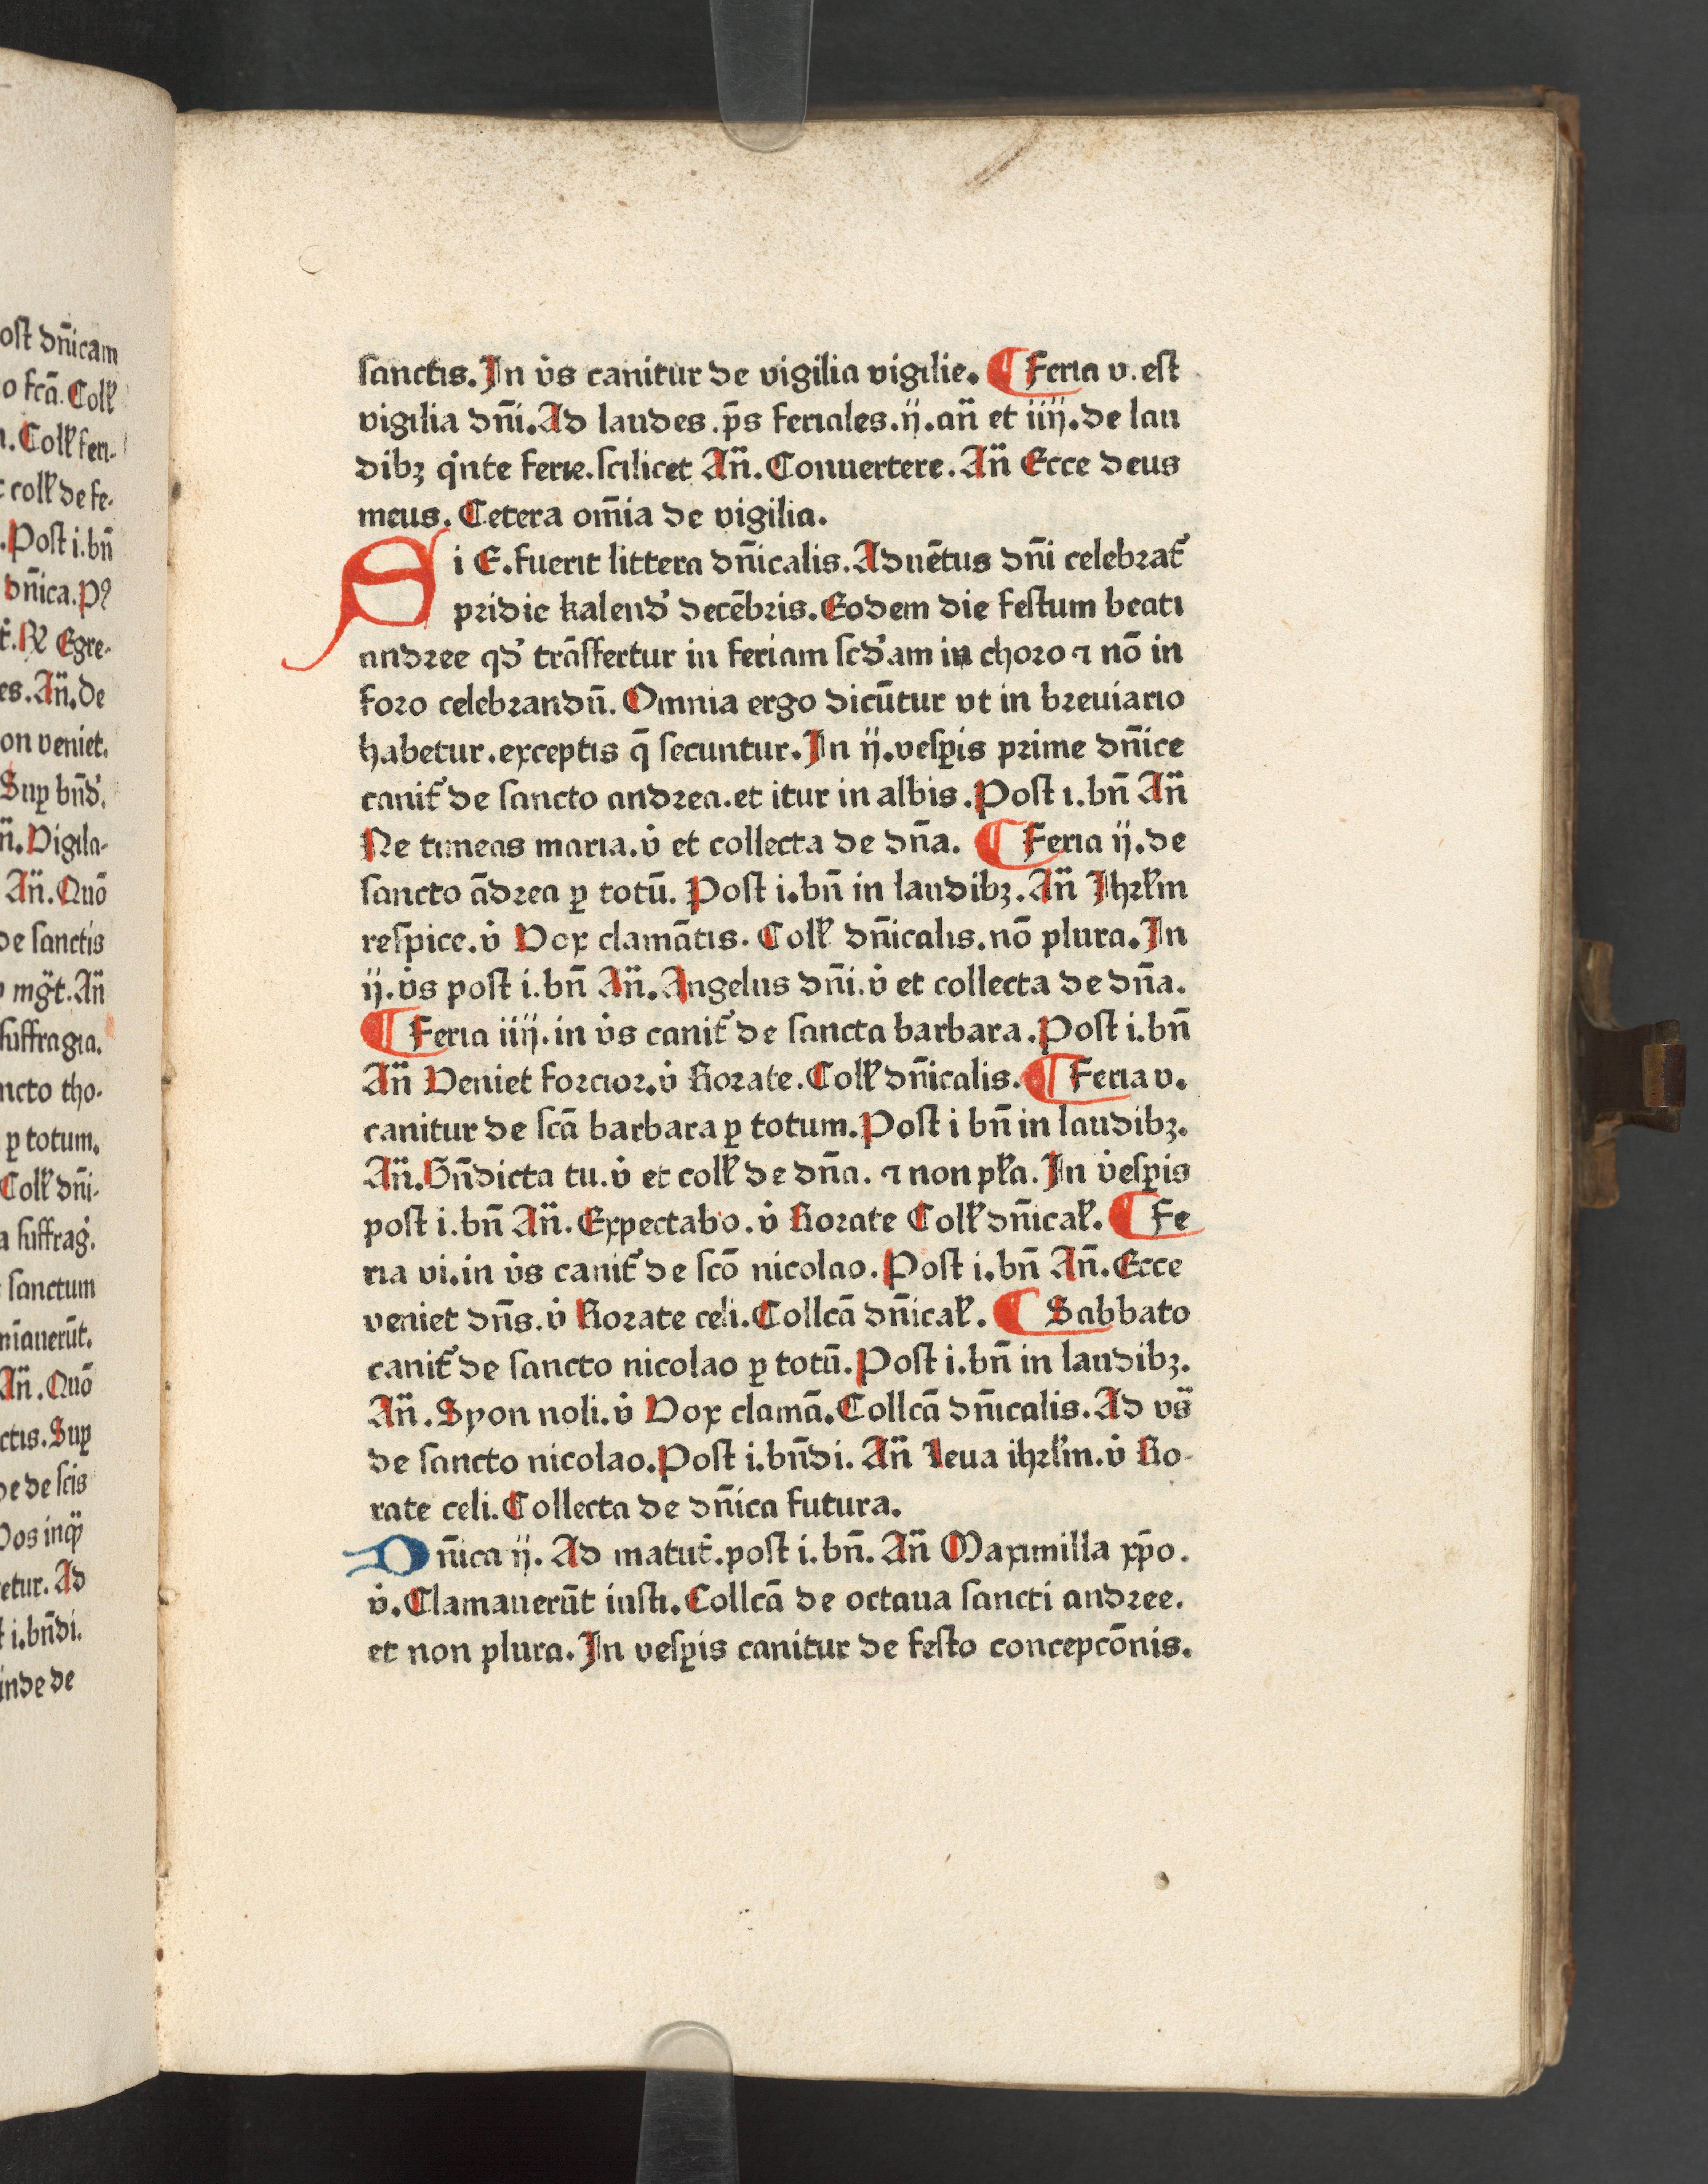 ost dn̄icam
o fcā. Coll̕
. Coll̕ feri-
coll̕ de fe-
. Post i. bn̄
dn̄ica. Pꝰ
Egre-
es. An̄. de
on veniet.
Sup bn̄d̕.
n̄. Vigila-
An̄. Quō
de sanctis
mḡt. An̄
suffragia.
ncto tho-
ꝑ totum.
Coll̕ dn̄i-
a suffrag̕.
sanctum
An̄. Quō
ctis. Suꝑ
de de scis
etur. Ad
i. bn̄di.
inde de
sanctis. In v̇s canitur de vigilia vigilie. ¶ Feria v. est
vigilia dn̄i. Ad laudes. p̄s feriales. ij. an̄ et iiij. de lau
dibꝫ q̇nte ferie. scilicet An̄. Conuertere. An̄ Ecce deus
meus. Cetera om̄ia de vigilia.
Si E. fuerit littera dn̄icalis. Aduētus dn̄i celebrat̕
pridie kalend̕ decēbris. Eodem die festum beati
andree qd̕ trāsfertur in feriam scd̕am in choro ⁊ nō in
foro celebrandū. Omnia ergo dicūtur vt in breuiario
habetur. exceptis q̄ secuntur. In ij. vesꝑis prime dn̄ice
canit̕ de sancto andrea. et itur in albis. Post i. bn̄ An̄
Ne timeas maria. v̇ et collecta de dn̄a. ¶ Feria ij. de
sancto ādrea ꝑ totū. Post i. bn̄ in laudibꝫ. An̄ Ihrl̕m
respice. v̇ Vox clamātis. Coll̕ dn̄icalis. nō plura. In
ij. v̇s post i. bn̄ An̄. Angelus dn̄i. v̇ et collecta de dn̄a.
¶ Feria iiij. in v̇s canit̕ de sancta barbara. Post i. bn̄
An̄ Veniet forcior. v̇ Rorate. Coll̕ dn̄icalis. ¶ Feria v.
canitur de scā barbara ꝑ totum. Post i bn̄ in laudibꝫ.
An̄. Bn̄dicta tu. v̇ et coll̕ de dn̄a. ⁊ non pl̕a. In v̇esꝑis
post i. bn̄ An̄. Expectabo. v̇ Rorate Coll̕ dn̄ical̕. ¶ Fe
ria vi. in v̇s canit̕ de scō nicolao. Post i. bn̄ An̄. Ecce
veniet dn̄s. v̇ Rorate celi. Collcā dn̄ical̕. ¶ Sabbato
canit̕ de sancto nicolao ꝑ totū. Post i. bn̄ in laudibꝫ.
An̄. Syon noli. v̇ Vox clamā. Collcā dn̄icalis. Ad vs̄
de sancto nicolao. Post i. bn̄di. An̄ Leua ihrl̕m. v̇ Ro-
rate celi. Collecta de dn̄ica futura.
Dn̄ica ij. Ad matut̕. post i. bn̄. An̄ Maximilla xp̄o.
v̇. Clamauerūt iusti. Collcā de octaua sancti andree.
et non plura. In vesꝑis canitur de festo concepcōnis.